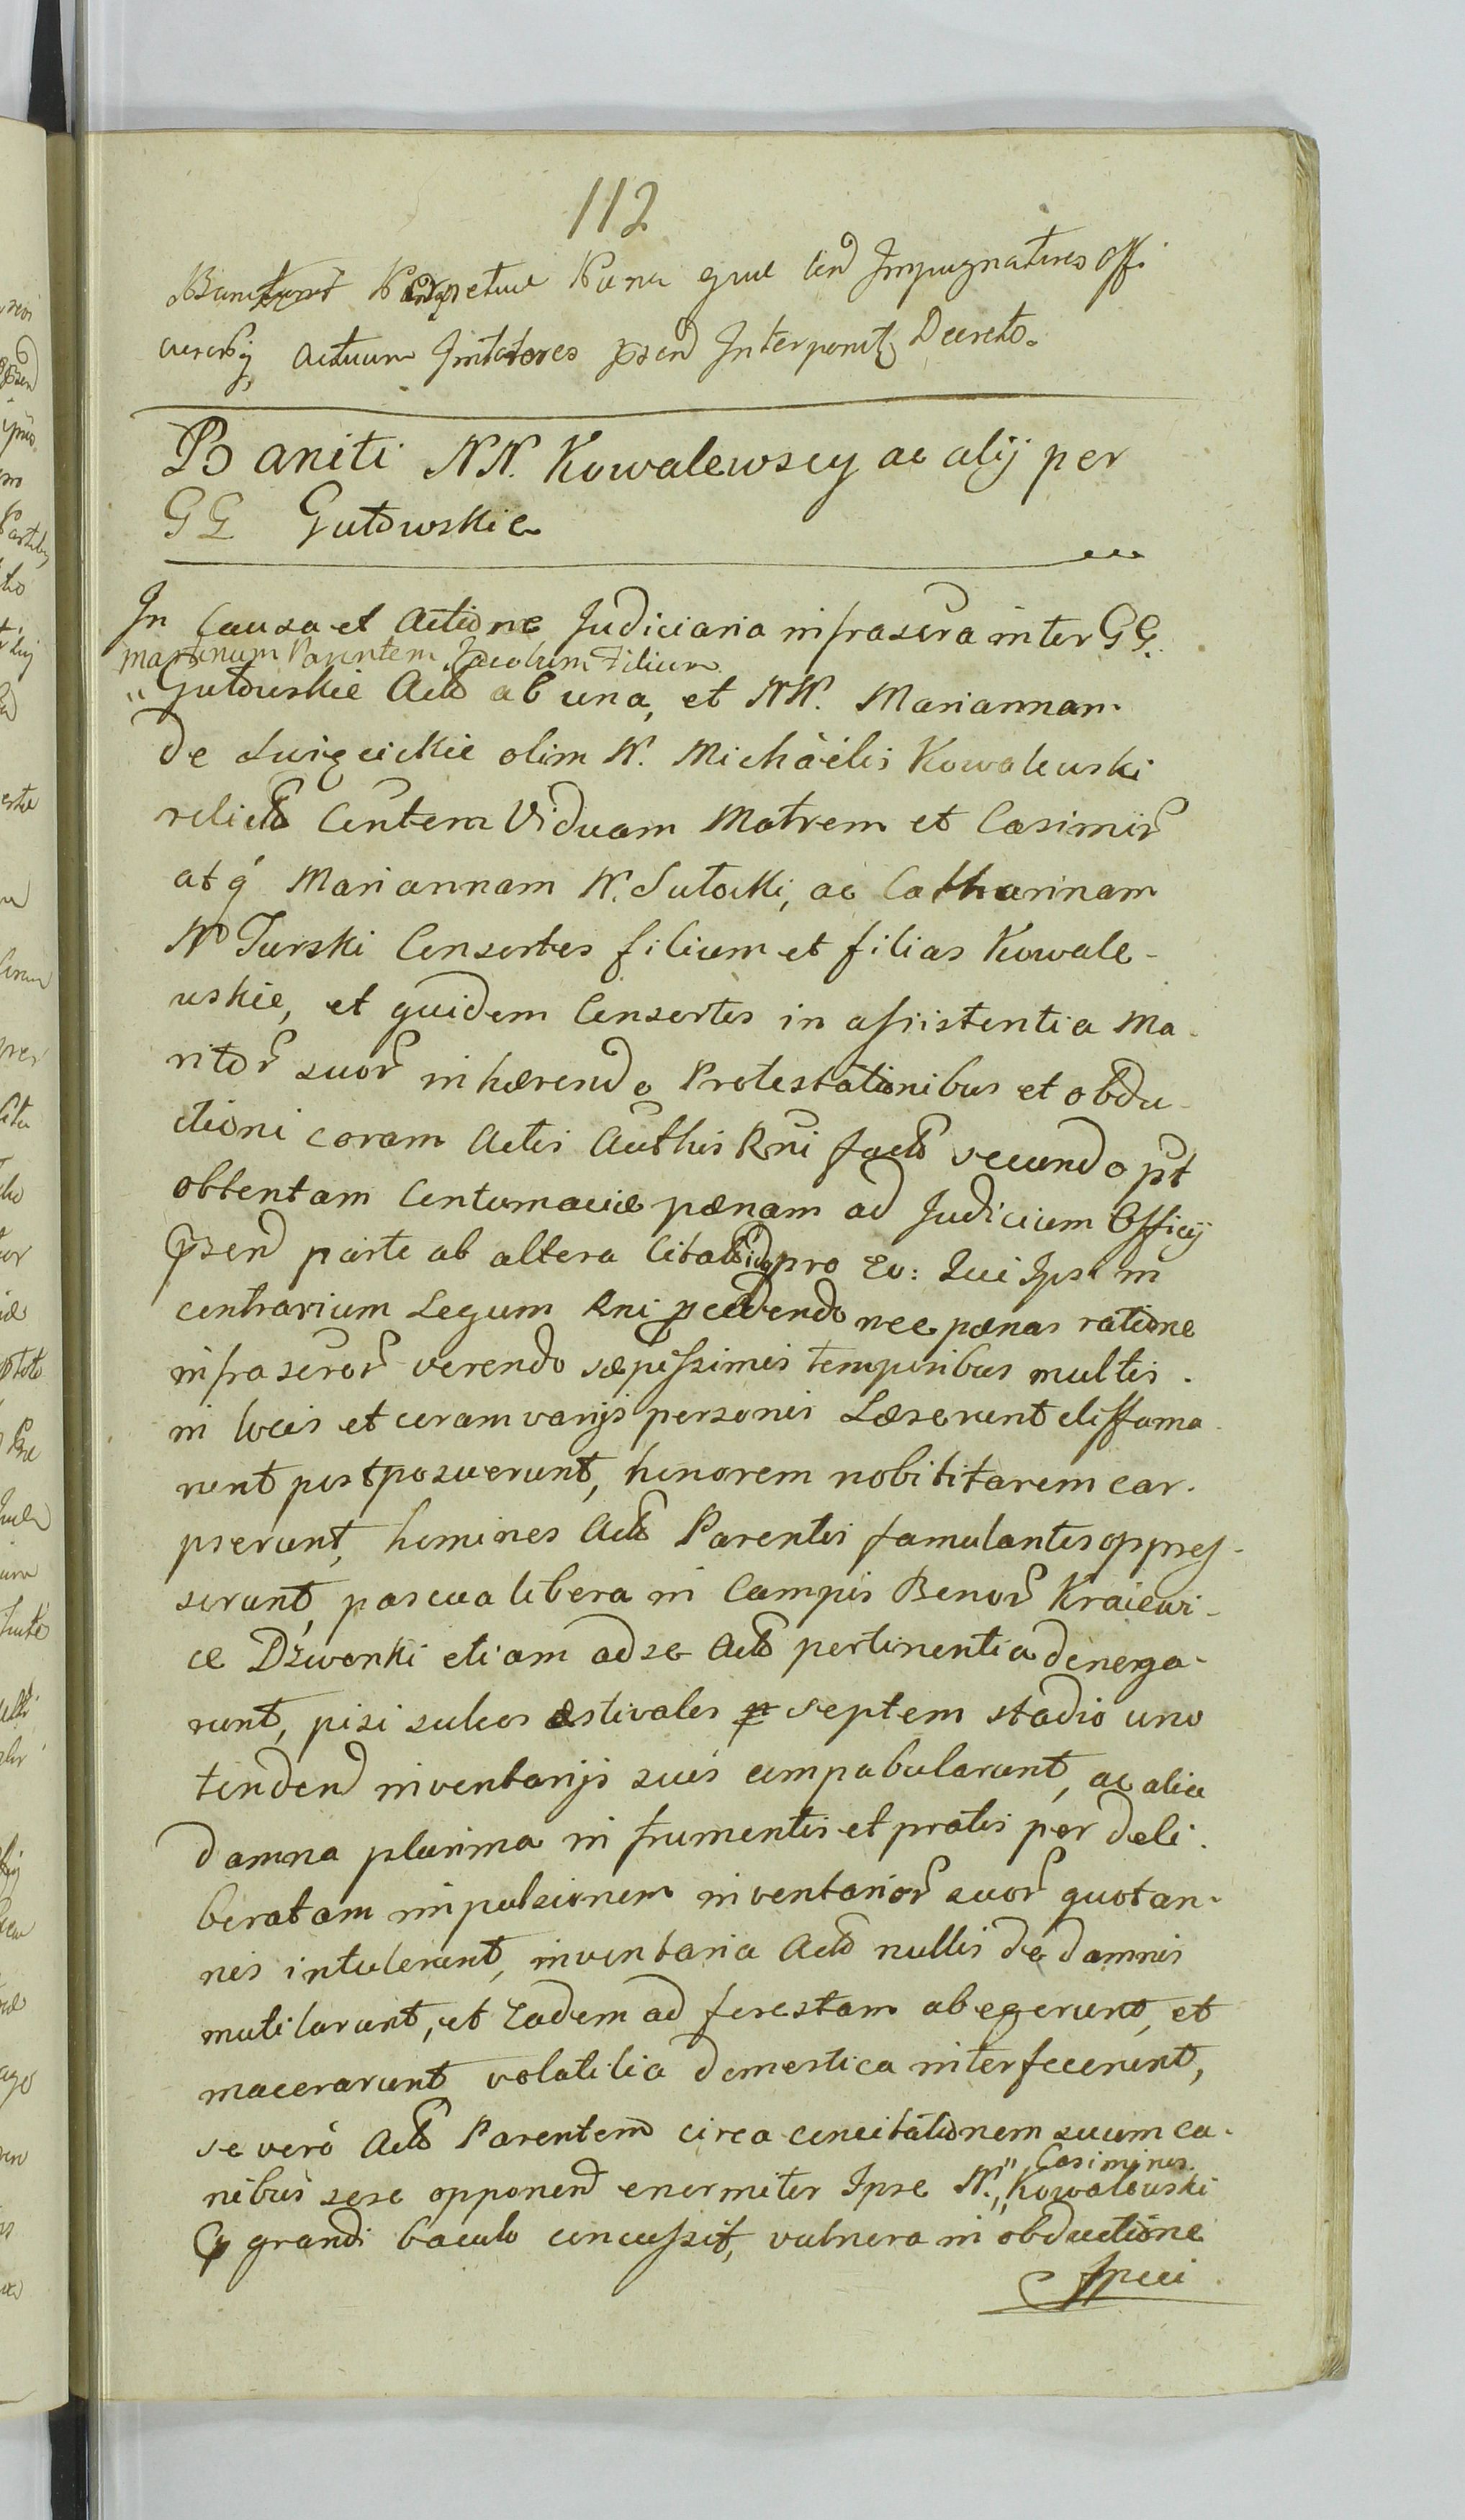 112
Perpetuae Paenae Impugnatores Offi
Actuum Irritatores psend Interponit Decreto.
Baniti NN. Kowalewscy ac alij per
GG Gutowskie
In Causa et Actione Judiciaria infrascra inter GG.
Martinum Parentem Jacobum Filium
"Gutowskie Acto ab una, et NN. Mariannam
de olim N. Michäelis Kowalewski
relicto Viduam Matrem et Casimir
atq Mariannam N. Sutocki, ac Catharinam
N Turski Consortes filium et filias Kowale-
wskie, et quidem Consortes in assistentia Ma-
ritor suor inhærendo Protestationibus et obdu-
ctioni coram Actis Authis Rni facto secundo pt
obtentam Contumaciæ pænam ad Judicium Officij
psend parte ab altera Citato pro Eo: Qui Ipsi in
contrarium Legum Rni pcedendo nec pænas ratione
infrascror verendo sæpissimis temporibus multis
in locis et coram varijs personis Læserunt diffama
runt postposuerunt, honorem nobilitarem car-
pserunt, homines Acto Parentis famulantes oppres-
serunt, pascua libera in Campis Bonor Kraiewi-
ce Dźwonki etiam ad se Acto pertinentia denega-
runt, pisi sulcos æstivales septem stadio uno
tendend inventarijs suis compabularunt, ac alia
damna plurima in frumentis et pratis per deli-
beratam impulsionem inventarior suor quotan-
nis intulerunt, inventaria Acto nullis de damnis
mutilarunt, et Eadem ad forestam abegerunt, et
macerarunt volatilia domestica interfecerunt,
se verò Acto Parentem circa concitationem suum ca-
nibus sese opponend enormiter Ipse N. "Casimirus
"Kowalewski
grandi baculo concussit, vulnera in obductione